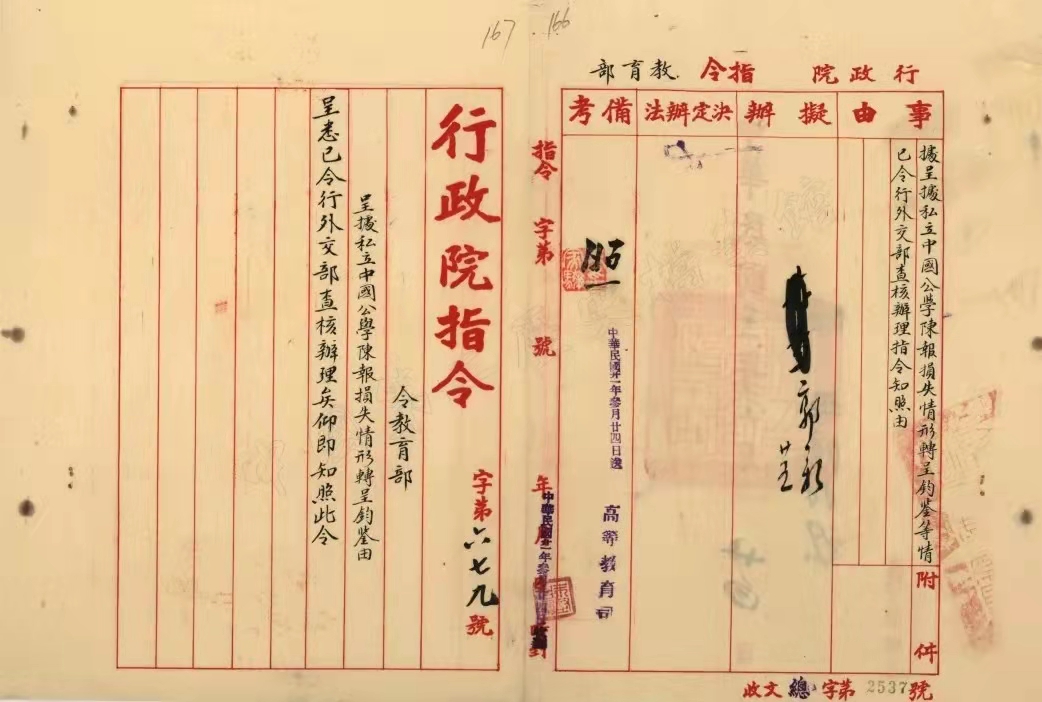 167
166
行政院 指令 教育部
事由
據呈據私立中國公學陳報損失情形轉呈鈞鑒等情
已令行外交部查核辦理指令知照由
附件
擬辦
郭
決定辦法
備考
中華民國廿一年參月廿四日送
高等教育司
收文總字第2537號
指令 字第 號
行政院指令
字第六七九號
令教育部
呈據私立中國公學陳報損失情形轉呈鈞鑒由
呈悉已令行外交部查核辦理矣仰即知照此令